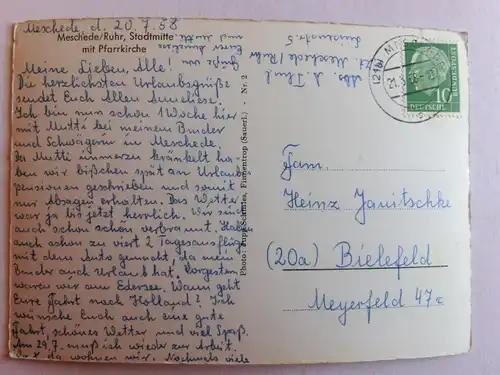 Meschede, d. 20.7.58
Meschede/Ruhr, Stadtmitte
mit Pfarrkirche
Meine Lieben, Alle!
Die herzlichsten Urlaubsgrüße
sendet Euch Allen Anneliese.
Ich bin nun schon 1 Woche hier
mit Mutti bei meinem Bruder
und Schwägerin in Meschede.
Da Mutti immerzu kränkelt ha-
ben wir bißchen spät an Urlaubs-
pensionen geschrieben und somit
nur Absagen erhalten. Das Wetter
war ja bis jetzt herrlich. Wir sind
auch schon schön verbrannt. Haben
auch schon zu viert 2 Tagesausflüge
mit dem Auto gemacht, da mein
Bruder auch Urlaub hat. Vorgestern
waren wir am Edersee. Wann geht
Eure Fahrt nach Holland? Ich
wünsche Euch auch eine gute
Fahrt, schönes Wetter und viel Spaß.
Am 29.7. muß ich wieder zur Arbeit.
da wohnen wir. Nochmals viele
Grüße von
Eurer Anneliese
und Mutti
Abs.
Meschede/Ruhr
Nr. 2
Finnentrop (Sauerl.)
Photo:
(21b)
DEUTSCHE
BUNDESPOST
10
Fam.
Heinz Janitschke
(20a) Bielefeld
Meyerfeld 47c